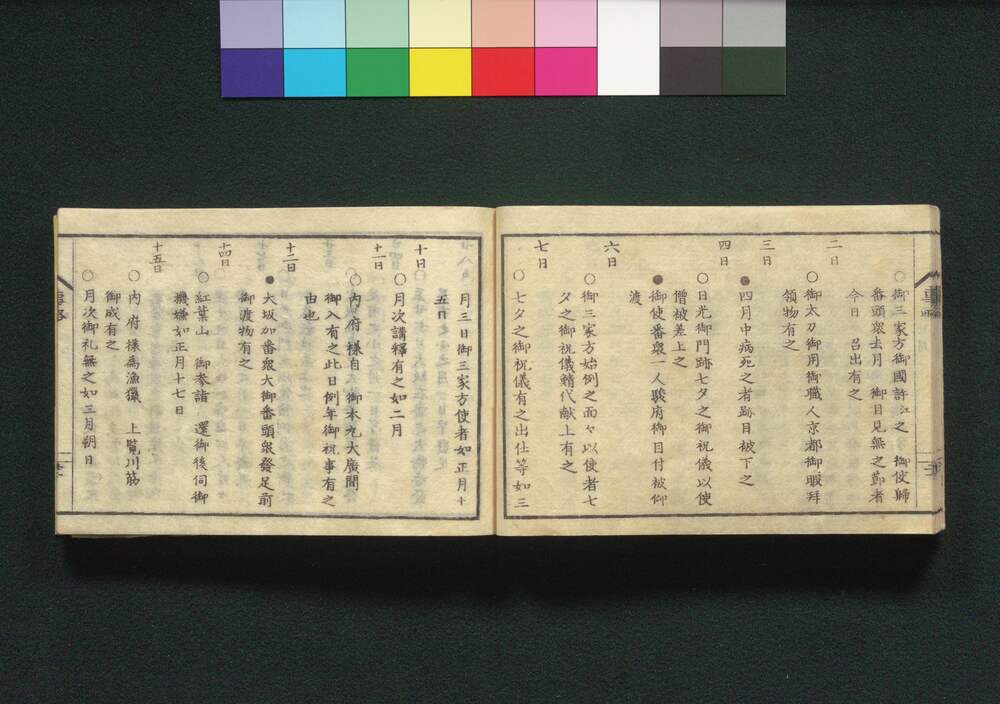 ○御三家方御國許江之　御使歸
番頭衆去月　御目見無之節者
今日　召出有之
二日
○御太刀御用御職人京都御暇拜
領物有之
三日
●四月中病死之者跡目被下之
四日
○日光御門跡七夕之御祝儀以使
僧被差上之
●御使番衆一人駿府御目付被仰
渡
六日
○御三家方始例之面々以使者七
夕之御祝儀鯖代献上有之
七日
○七夕之御祝儀有之出仕等如三
月三日御三家方使者如正月十
五日
十日
○月次講釋有之如二月
十一日
○内府様自大御本丸大廣間
御入有之此日例年御祝事有之
由也
十二日
●大坂加番衆大御番頭衆發足前
御渡物有之
十四日
○紅葉山　御参詣　還御後伺御
機嫌如正月十七日
十五日
○内府様為漁獵　上覧川筋
御成有之
○月次御礼無之如三月朔日